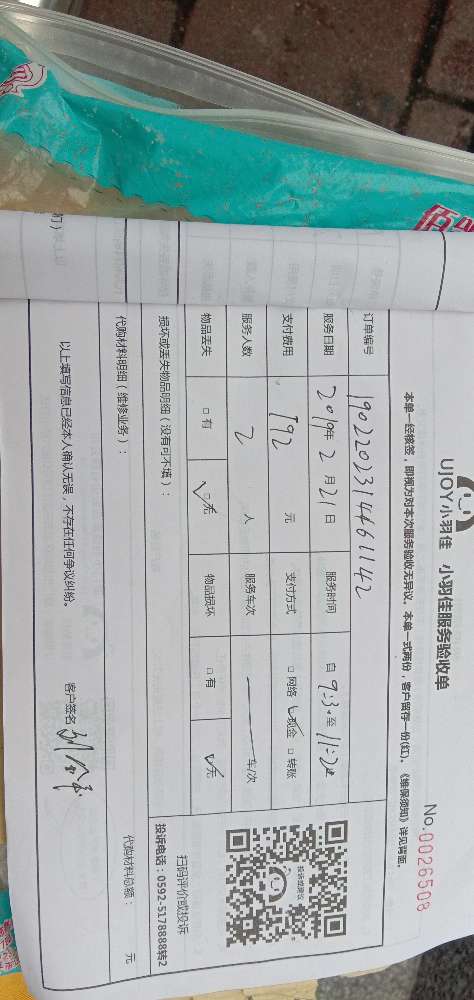 UJOY小羽佳 小羽佳服务验收单
No.0026508
本单一经核签，即视为对本次服务验收无异议。本单一式两份，客户留存一份(红)。《维保须知》详见背面。
订单编号 1902202314461142
服务日期 2019年 2月 21日 服务时间 自 9:30至 11:20
支付费用 192 元 支付方式 □网络 ☑现金 □转账
服务人数 2 人 服务车次 车/次
物品丢失 □有 ☑无 物品损坏 □有 ☑无
损坏或丢失物品明细（没有可不填）：
扫码评价或投诉
投诉电话：0592-5178888转2
投诉或建议
代购材料明细（维修业务）： 代购材料总额： 元
以上填写信息已经本人确认无误，不存在任何争议纠纷。 客户签名